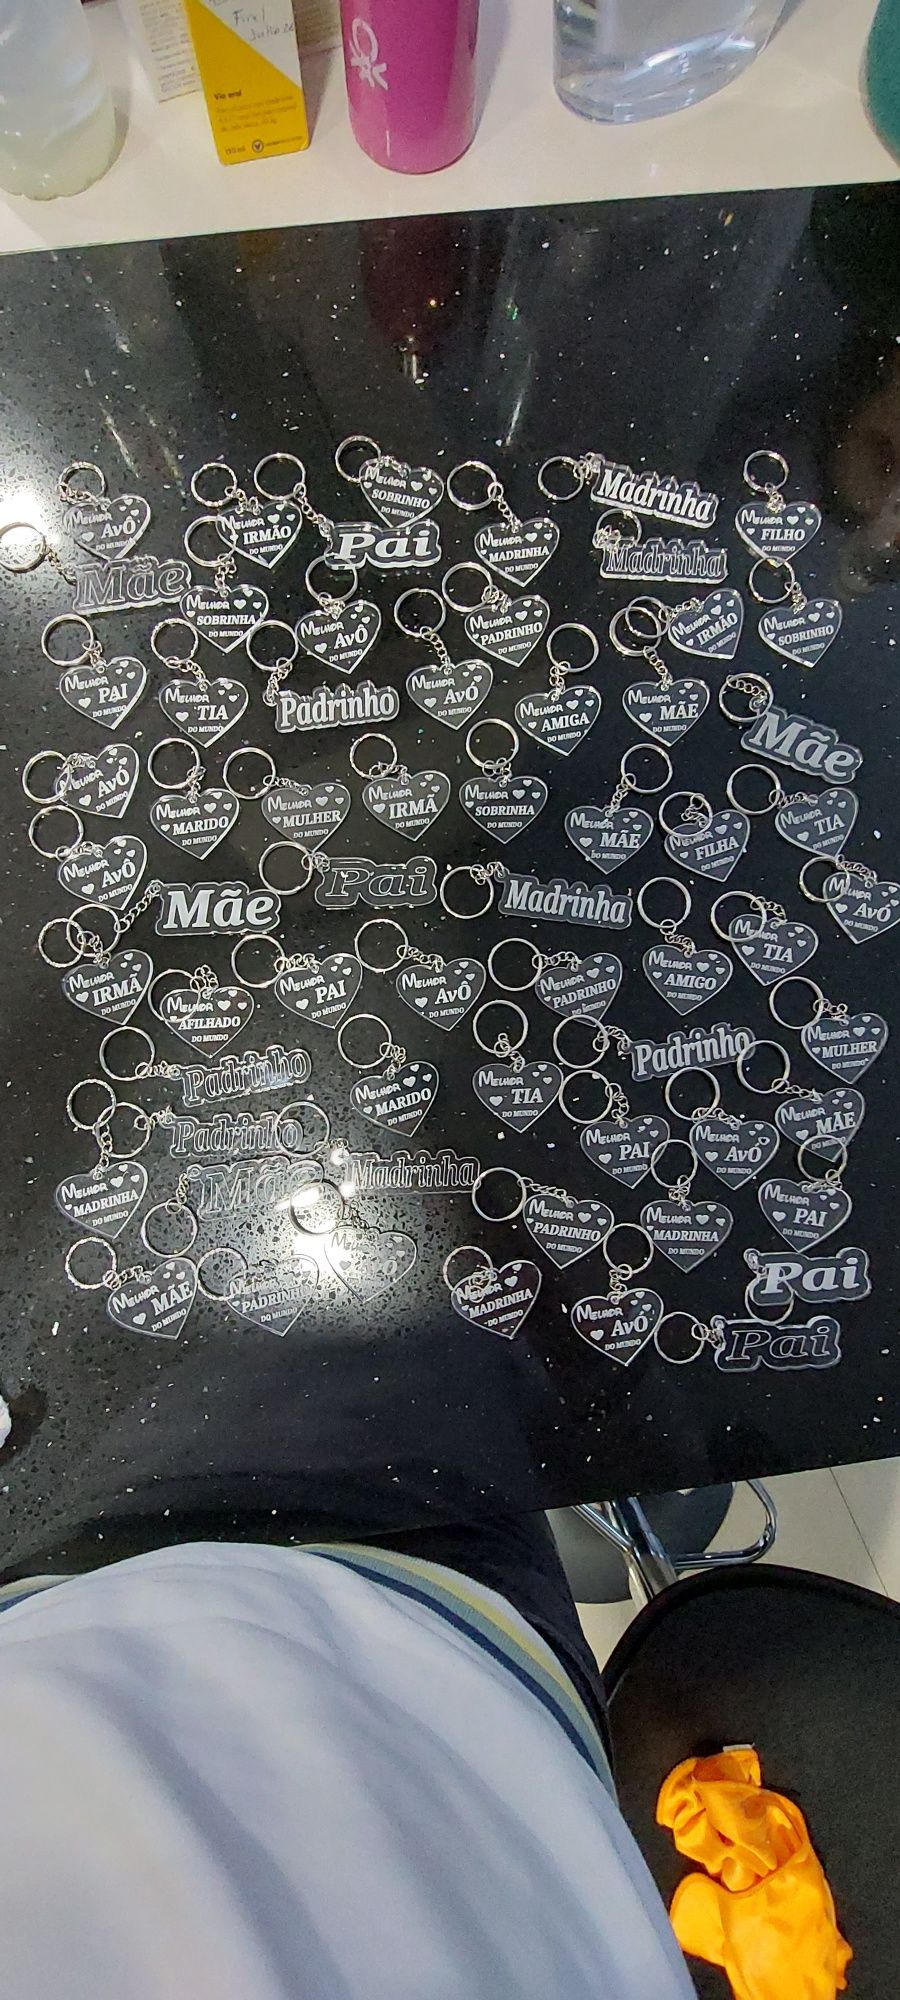 Final
Julho 26
Via oral
150 ml
Melhor
SOBRINHO
DO MUNDO
Madrinha
Melhor
AVÔ
DO MUNDO
Melhor
IRMÃO
DO MUNDO
Pai
Melhor
MADRINHA
DO MUNDO
Melhor
FILHO
DO MUNDO
Madrinha
Mãe
Melhor
SOBRINHA
DO MUNDO
Melhor
AVÔ
DO MUNDO
Melhor
PADRINHO
DO MUNDO
Melhor
IRMÃO
DO MUNDO
Melhor
SOBRINHO
DO MUNDO
Melhor
PAI
DO MUNDO
Melhor
TIA
DO MUNDO
Padrinho
Melhor
AVÓ
DO MUNDO
Melhor
AMIGA
DO MUNDO
Melhor
MÃE
DO MUNDO
Mãe
Melhor
AVÔ
DO MUNDO
Melhor
MARIDO
DO MUNDO
Melhor
MULHER
DO MUNDO
Melhor
IRMÃ
DO MUNDO
Melhor
SOBRINHA
DO MUNDO
Melhor
MÃE
DO MUNDO
Melhor
FILHA
DO MUNDO
Melhor
TIA
DO MUNDO
Melhor
AVÔ
DO MUNDO
Mãe
Pai
Madrinha
Melhor
AVÔ
DO MUNDO
Melhor
IRMÃ
DO MUNDO
Melhor
AFILHADO
DO MUNDO
Melhor
PAI
DO MUNDO
Melhor
AVÔ
DO MUNDO
Melhor
PADRINHO
DO MUNDO
Melhor
AMIGO
DO MUNDO
Melhor
TIA
DO MUNDO
Padrinho
Melhor
MARIDO
DO MUNDO
Melhor
TIA
DO MUNDO
Padrinho
Melhor
MULHER
DO MUNDO
Padrinho
Melhor
PAI
DO MUNDO
Melhor
AVÓ
DO MUNDO
Melhor
MÃE
DO MUNDO
Melhor
MADRINHA
DO MUNDO
Mãe
Madrinha
Melhor
PADRINHO
DO MUNDO
Melhor
MADRINHA
DO MUNDO
Melhor
PAI
DO MUNDO
Melhor
MÃE
DO MUNDO
Melhor
PADRINHO
DO MUNDO
Melhor
MADRINHA
DO MUNDO
Melhor
AVÓ
DO MUNDO
Pai
Pai